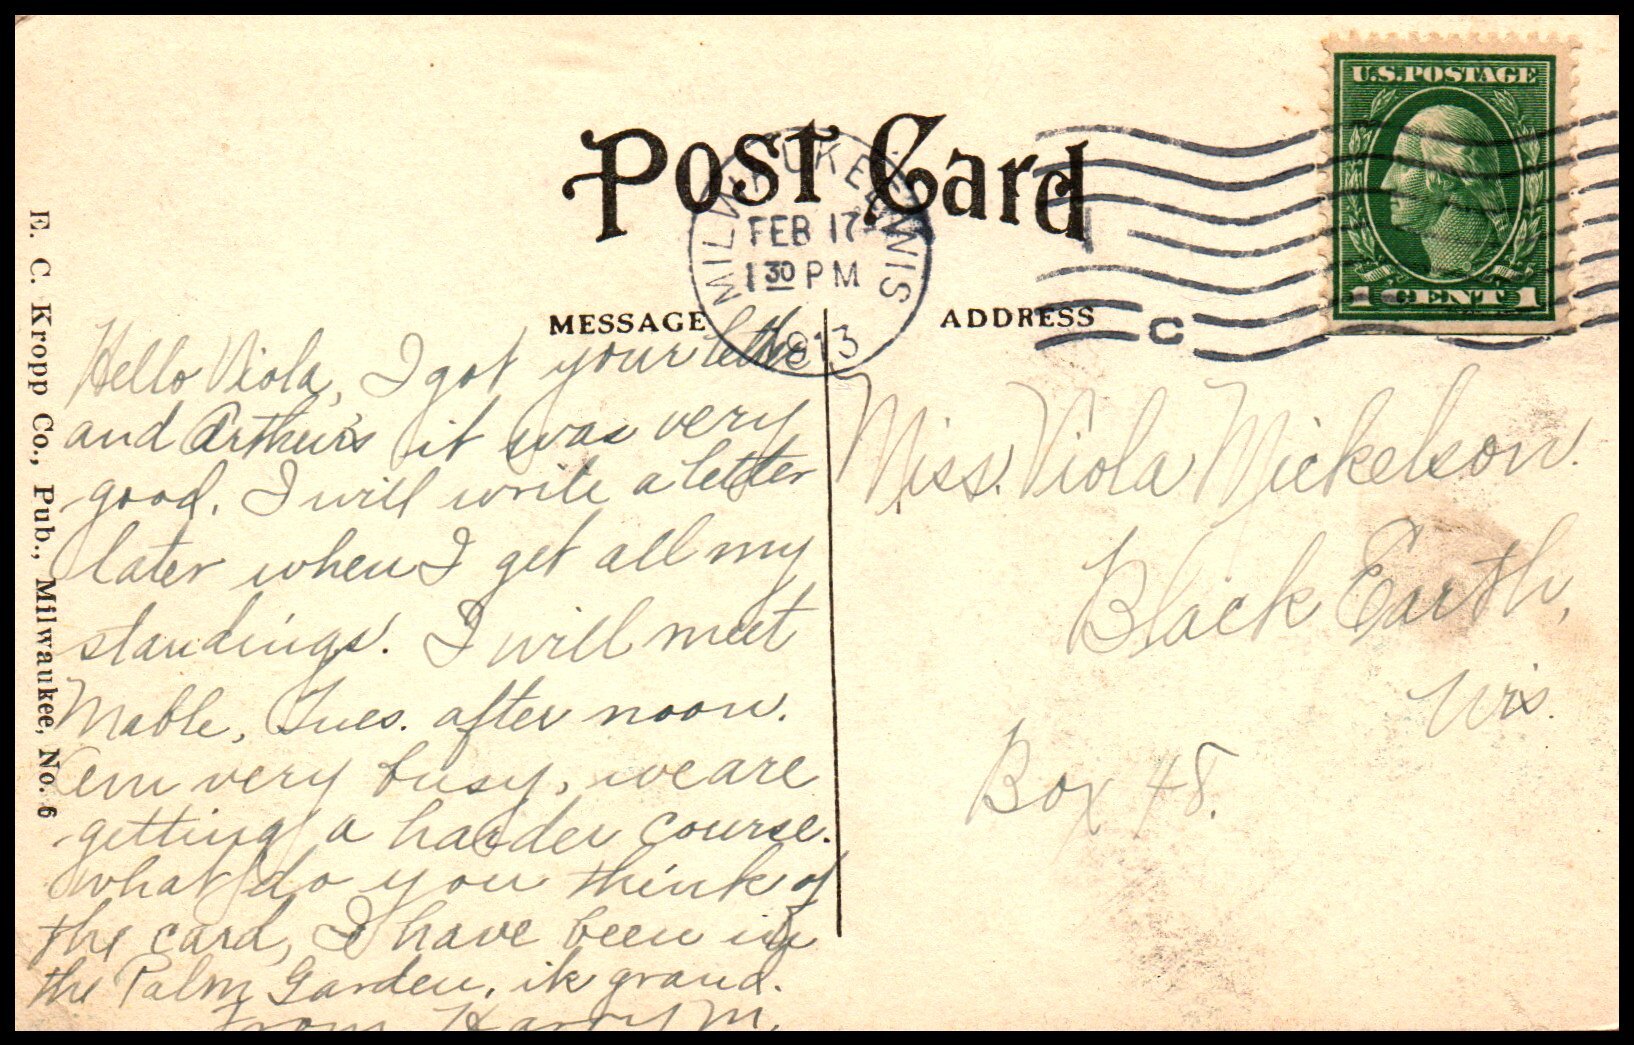 U.S.POSTAGE
1 CENT 1
Post Card
MILWAUKEE, WIS
FEB 17
1 30 PM
1913
C
MESSAGE
ADDRESS
E. C. Kropp Co., Pub., Milwaukee, No. 6
Hello Viola, I got your letter
and Arthur's it was very
good. I will write a letter
later when I get all my
standings. I will meet
Mable, Tues. after noon.
em very busy, we are
getting a harder course.
what do you think of
the card, I have been in
the Palm Garden. its grand.
From Harry M.
Miss. Viola Mickelson.
Black Earth,
Wis.
Box 48.